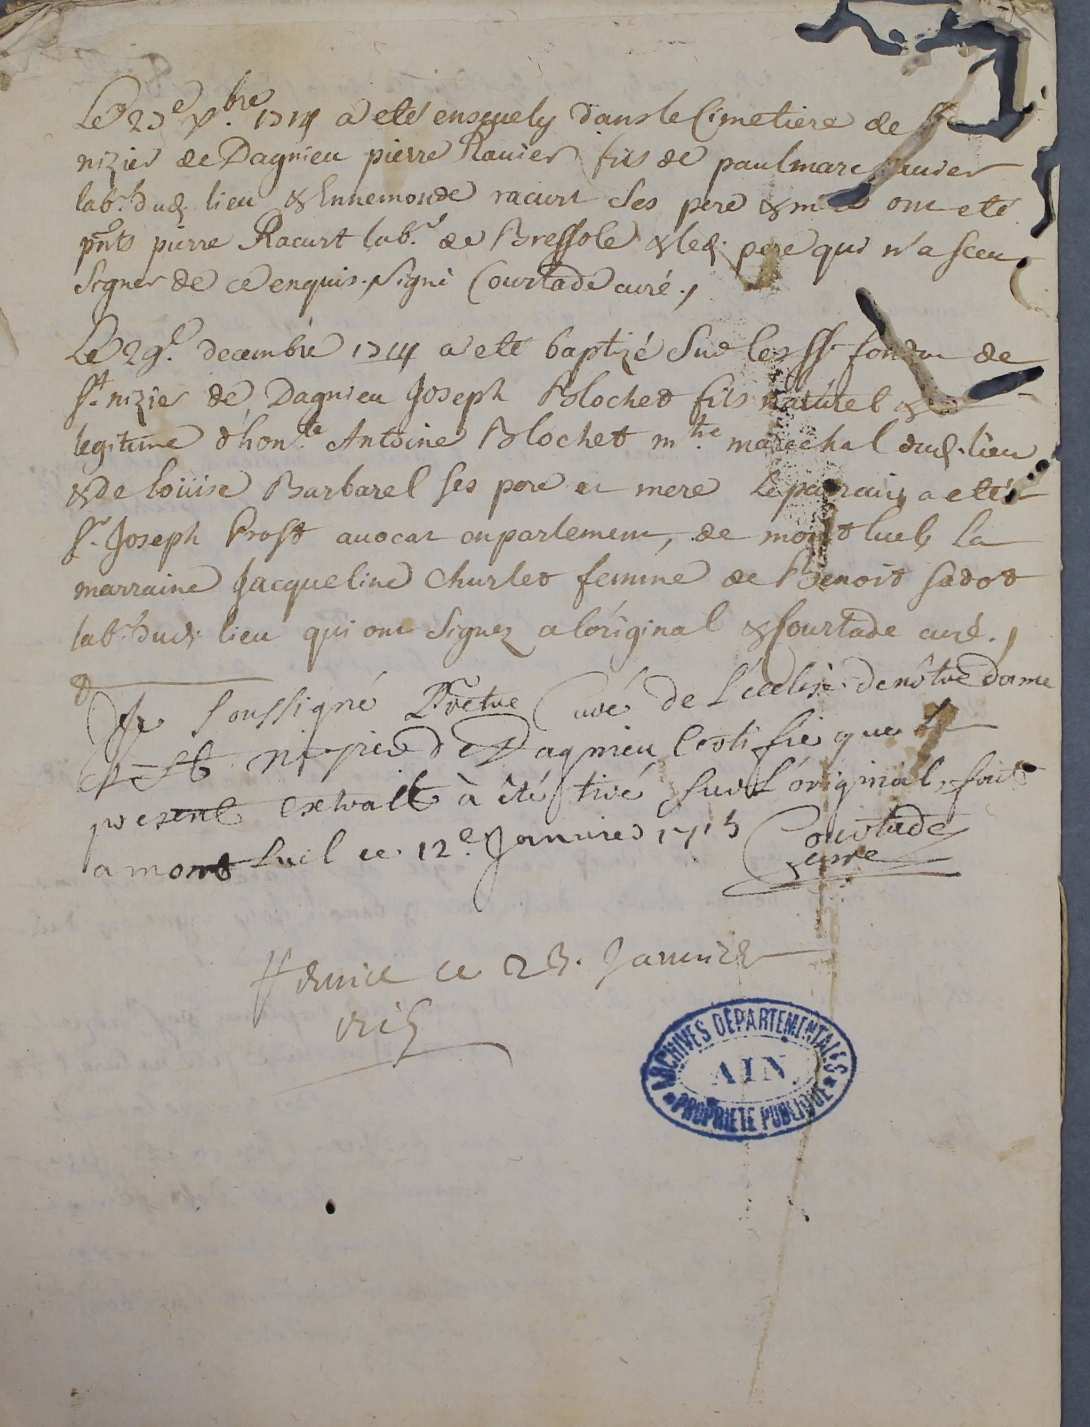 Le 23e xbre 1714 a eté ensevely dans le Cimetiere de St
nizier de Dagnieu pierre Ravier fils de paul marc
labr. dud. lieu & Ennemonde racurt ses pere & mere ont eté
pnts pierre Racurt labr. de Bressole & led. pere qui n'a sceu
signer de ce enquis, signé Courtade curé.,
Le 29e. decembre 1714 a eté baptizé sur les ff. fonds de
St. nizier de Dagnieu Joseph Blochet fils naturel &
legitime d'honble Antoine Blochet mtre marechal dud. lieu
& de loüise Barbarel ses pere et mere Le parrain a eté
Sr. Joseph Prost avocat en parlement, de montluel, La
marraine Jacqueline Churlet femme de Benoit Sadot
labr. dud. lieu qui ont signez a l'original & Courtade curé.,
Je soussigné Prêtre Curé de L'eclise de nôtre dame
& St nizier de Dagnieu Certifie que le
present extrait à été tiré sur L'original, fait
a montluel ce 12e Janvier 1715 Courtade
curé
ce 23. Janvier
ARCHIVES DÉPARTEMENTALES
AIN
PROPRIÉTÉ PUBLIQUE